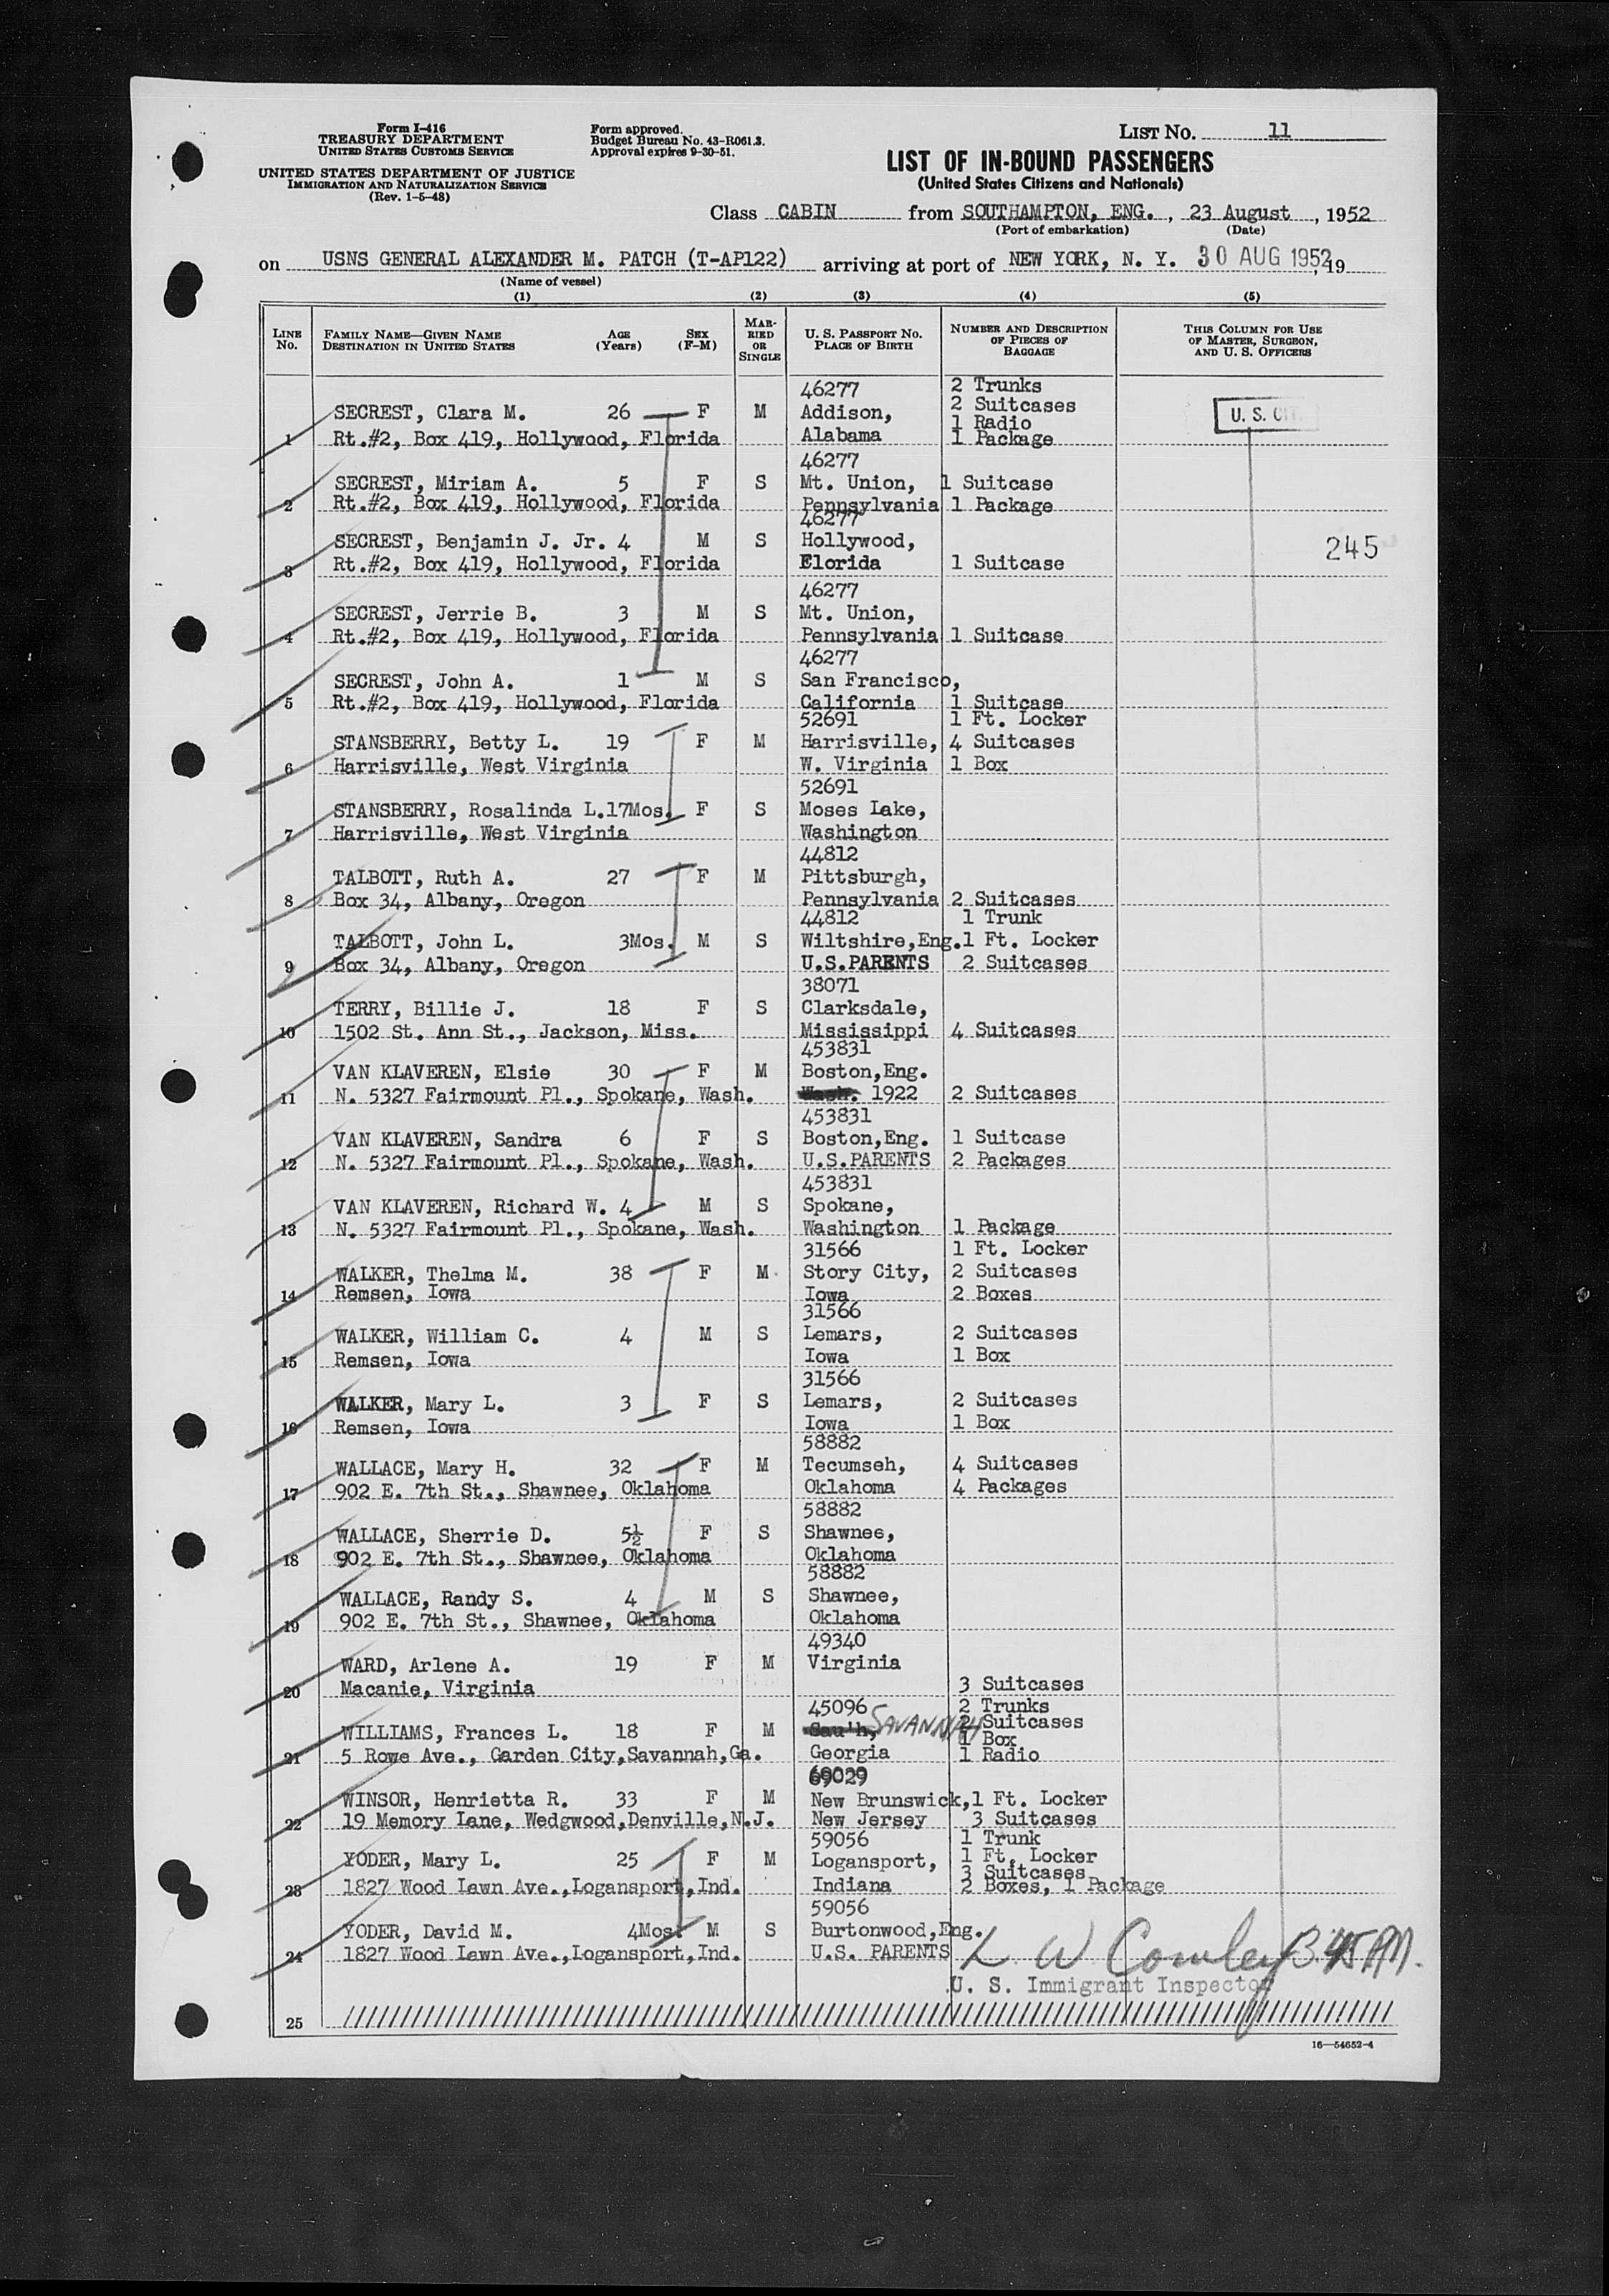 Form I-416
TREASURY DEPARTMENT
UNITED STATES CUSTOMS SERVICE
UNITED STATES DEPARTMENT OF JUSTICE
IMMIGRATION AND NATURALIZATION SERVICE
(Rev. 1-5-48)
Form approved.
Budget Bureau No. 43-R061.3.
Approval expires 9-30-51.
LIST No. 11
LIST OF IN-BOUND PASSENGERS
(United States Citizens and Nationals)
Class CABIN from SOUTHAMPTON, ENG., 23 August, 1952
(Port of embarkation) (Date)
on USNS GENERAL ALEXANDER M. PATCH (T-AP122) arriving at port of NEW YORK, N. Y. 30 AUG 1952, 19
(Name of vessel)
(1) (2) (3) (4) (5)
LINE No. FAMILY NAME—GIVEN NAME DESTINATION IN UNITED STATES AGE (Years) SEX (F-M) MARRIED OR SINGLE U. S. PASSPORT NO. PLACE OF BIRTH NUMBER AND DESCRIPTION OF PIECES OF BAGGAGE THIS COLUMN FOR USE OF MASTER, SURGEON, AND U. S. OFFICERS
46277 2 Trunks
SECREST, Clara M. 26 F M Addison, 2 Suitcases U. S. CIT.
1 Radio
1 Rt.#2, Box 419, Hollywood, Florida Alabama 1 Package
46277
SECREST, Miriam A. 5 F S Mt. Union, 1 Suitcase
2 Rt.#2, Box 419, Hollywood, Florida Pennsylvania 1 Package
46277
SECREST, Benjamin J. Jr. 4 M S Hollywood, 245
3 Rt.#2, Box 419, Hollywood, Florida Florida 1 Suitcase
46277
SECREST, Jerrie B. 3 M S Mt. Union,
4 Rt.#2, Box 419, Hollywood, Florida Pennsylvania 1 Suitcase
46277
SECREST, John A. 1 M S San Francisco,
5 Rt.#2, Box 419, Hollywood, Florida California 1 Suitcase
52691 1 Ft. Locker
STANSBERRY, Betty L. 19 F M Harrisville, 4 Suitcases
6 Harrisville, West Virginia W. Virginia 1 Box
52691
STANSBERRY, Rosalinda L. 17Mos. F S Moses Lake,
7 Harrisville, West Virginia Washington
44812
TALBOTT, Ruth A. 27 F M Pittsburgh,
8 Box 34, Albany, Oregon Pennsylvania 2 Suitcases
44812 1 Trunk
TALBOTT, John L. 3Mos. M S Wiltshire,Eng. 1 Ft. Locker
9 Box 34, Albany, Oregon U.S.PARENTS 2 Suitcases
38071
TERRY, Billie J. 18 F S Clarksdale,
10 1502 St. Ann St., Jackson, Miss. Mississippi 4 Suitcases
453831
VAN KLAVEREN, Elsie 30 F M Boston,Eng.
11 N. 5327 Fairmount Pl., Spokane, Wash. Wash. 1922 2 Suitcases
453831
VAN KLAVEREN, Sandra 6 F S Boston,Eng. 1 Suitcase
12 N. 5327 Fairmount Pl., Spokane, Wash. U.S.PARENTS 2 Packages
453831
VAN KLAVEREN, Richard W. 4 M S Spokane,
13 N. 5327 Fairmount Pl., Spokane, Wash. Washington 1 Package
31566 1 Ft. Locker
WALKER, Thelma M. 38 F M Story City, 2 Suitcases
14 Remsen, Iowa Iowa 2 Boxes
31566
WALKER, William C. 4 M S Lemars, 2 Suitcases
15 Remsen, Iowa Iowa 1 Box
31566
WALKER, Mary L. 3 F S Lemars, 2 Suitcases
16 Remsen, Iowa Iowa 1 Box
58882
WALLACE, Mary H. 32 F M Tecumseh, 4 Suitcases
17 902 E. 7th St., Shawnee, Oklahoma Oklahoma 4 Packages
58882
WALLACE, Sherrie D. 5½ F S Shawnee,
18 902 E. 7th St., Shawnee, Oklahoma Oklahoma
58882
WALLACE, Randy S. 4 M S Shawnee,
19 902 E. 7th St., Shawnee, Oklahoma Oklahoma
49340
WARD, Arlene A. 19 F M Virginia
20 Macanie, Virginia 3 Suitcases
45096 2 Trunks
WILLIAMS, Frances L. 18 F M Sau'h, SAVANNAH 2 Suitcases
1 Box
21 5 Rowe Ave., Garden City,Savannah,Ga. Georgia 1 Radio
69029
WINSOR, Henrietta R. 33 F M New Brunswick, 1 Ft. Locker
22 19 Memory Lane, Wedgwood,Denville,N.J. New Jersey 3 Suitcases
59056 1 Trunk
YODER, Mary L. 25 F M Logansport, 1 Ft. Locker
3 Suitcases
23 1827 Wood Lawn Ave.,Logansport,Ind. Indiana 2 Boxes, 1 Package
59056
YODER, David M. 4Mos. M S Burtonwood,Eng.
24 1827 Wood Lawn Ave.,Logansport,Ind. U.S. PARENTS L W Cowley 3:45 PM.
U. S. Immigrant Inspector
25
16—54652-4